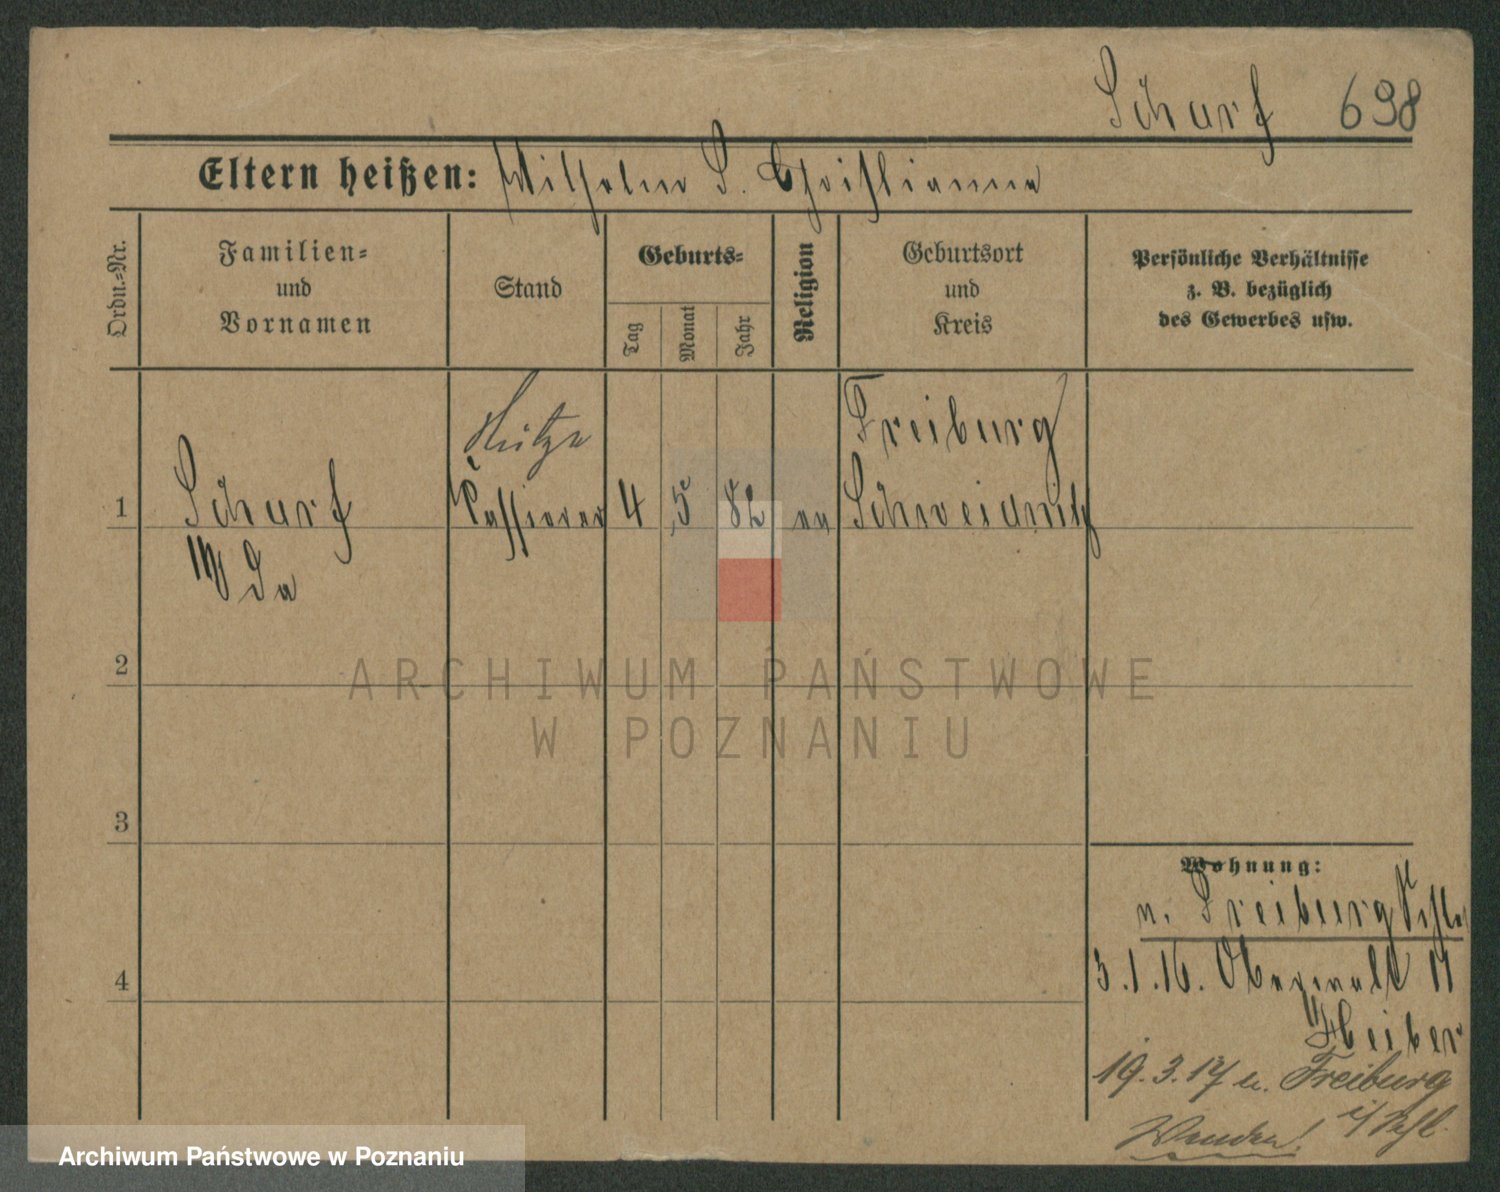 Scharf 698
Eltern heißen: Wilhelm S. Christianna
Ordn.-Nr.
Familien-
und
Vornamen
Stand
Geburts-
Tag
Monat
Jahr
Religion
Geburtsort
und
Kreis
Persönliche Verhältnisse
z. B. bezüglich
des Gewerbes usw.
Freiburg
1 Scharf 4 5 82 Schweidnitz
2
3
4
Wohnung:
n. Freiburg Schles
3.1.16. Oberwall 11
19.3.17 n. Freiburg
i/Schl.
Wenden!
ARCHIWUM PAŃSTWOWE
W POZNANIU
Archiwum Państwowe w Poznaniu